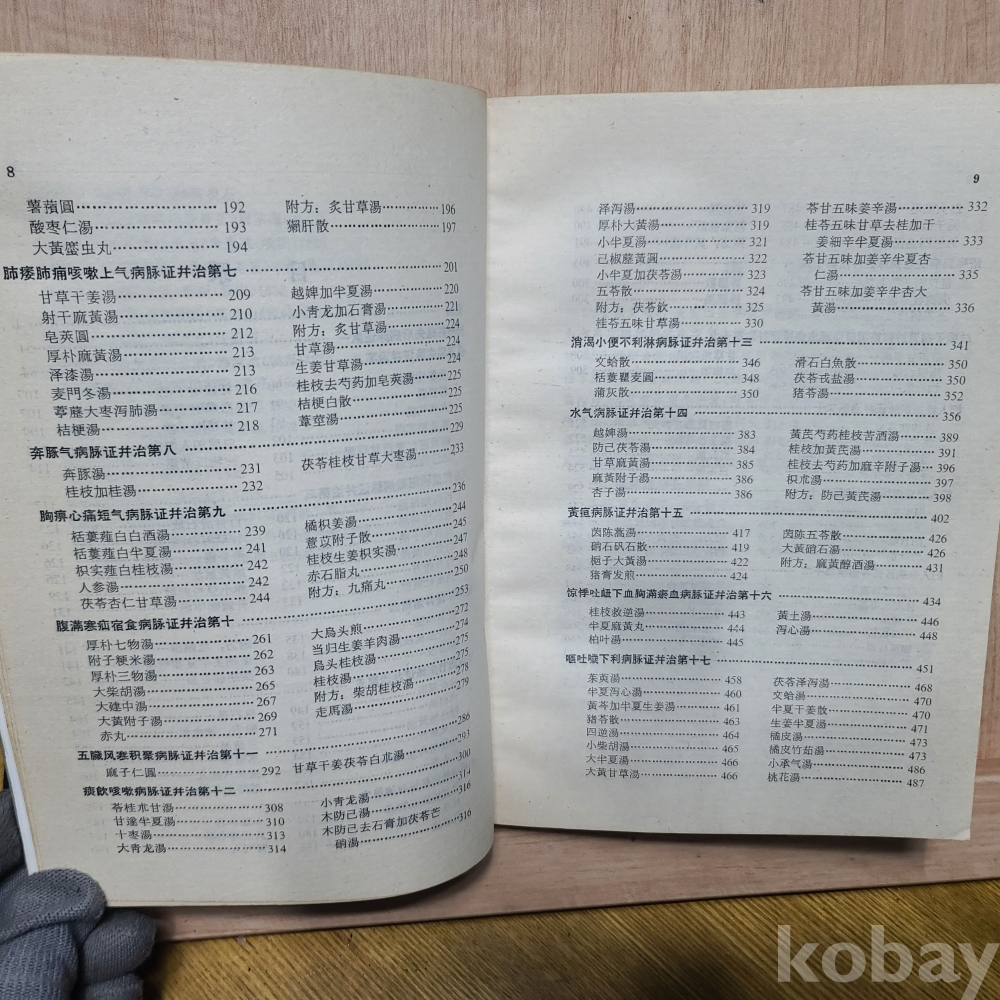 8
薯蓣圓 192
酸枣仁湯 193
大黃䗪虫丸 194
附方：炙甘草湯 196
獺肝散 197
肺痿肺痈咳嗽上气病脉证幷治第七 201
甘草干姜湯 209
射干麻黃湯 210
皂莢圓 212
厚朴麻黃湯 213
泽漆湯 213
麦門冬湯 216
葶藶大枣泻肺湯 217
桔梗湯 218
越婢加半夏湯 220
小青龙加石膏湯 221
附方：炙甘草湯 224
甘草湯 224
生姜甘草湯 224
桂枝去芍药加皂莢湯 225
桔梗白散 225
葦莖湯 225
奔豚气病脉证幷治第八 229
奔豚湯 231
桂枝加桂湯 232
茯苓桂枝甘草大枣湯 233
胸痹心痛短气病脉证幷治第九 236
栝蔞薤白白酒湯 239
栝蔞薤白半夏湯 241
枳实薤白桂枝湯 242
人参湯 242
茯苓杏仁甘草湯 244
橘枳姜湯 244
薏苡附子散 245
桂枝生姜枳实湯 247
赤石脂丸 248
附方：九痛丸 250
腹滿寒疝宿食病脉证幷治第十 253
厚朴七物湯 261
附子粳米湯 262
厚朴三物湯 263
大柴胡湯 265
大建中湯 267
大黃附子湯 269
赤丸 271
大烏头煎 272
当归生姜羊肉湯 274
烏头桂枝湯 275
桂枝湯 275
附方：柴胡桂枝湯 278
走馬湯 279
五臟风寒积聚病脉证幷治第十一 286
麻子仁圓 292
甘草干姜茯苓白朮湯 293
痰飮咳嗽病脉证幷治第十二 300
苓桂朮甘湯 308
甘遂半夏湯 310
十枣湯 313
大青龙湯 314
小青龙湯 314
木防己湯 316
木防己去石膏加茯苓芒
硝湯 316
9
泽泻湯 319
厚朴大黃湯 319
小半夏湯 321
己椒藶黃圓 322
小半夏加茯苓湯 323
五苓散 324
附方：茯苓飮 325
桂苓五味甘草湯 330
苓甘五味姜辛湯 332
桂苓五味甘草去桂加干
姜細辛半夏湯 333
苓甘五味加姜辛半夏杏
仁湯 335
苓甘五味加姜辛半杏大
黃湯 336
消渴小便不利淋病脉证幷治第十三 341
文蛤散 346
栝蔞瞿麦圓 348
蒲灰散 352
滑石白魚散 350
茯苓戎盐湯 350
猪苓湯 352
水气病脉证幷治第十四 356
越婢湯 383
防己茯苓湯 384
甘草麻黃湯 385
麻黃附子湯 386
杏子湯 386
黃芪芍药桂枝苦酒湯 389
桂枝加黃芪湯 391
桂枝去芍药加麻辛附子湯 396
枳朮湯 397
附方：防己黃芪湯 398
黃疸病脉证幷治第十五 402
茵陈蒿湯 417
硝石矾石散 419
梔子大黃湯 422
猪膏发煎 424
茵陈五苓散 426
大黃硝石湯 426
附方：麻黃醇酒湯 431
惊悸吐衄下血胸滿瘀血病脉证幷治第十六 434
桂枝救逆湯 443
半夏麻黃丸 444
柏叶湯 445
黃土湯 446
泻心湯 448
嘔吐噦下利病脉证幷治第十七 451
茱萸湯 458
半夏泻心湯 460
黃芩加半夏生姜湯 461
猪苓散 463
四逆湯 464
小柴胡湯 465
大半夏湯 466
大黃甘草湯 466
茯苓泽泻湯 468
文蛤湯 470
半夏干姜散 470
生姜半夏湯 471
橘皮湯 473
橘皮竹茹湯 473
小承气湯 486
桃花湯 487
kobay